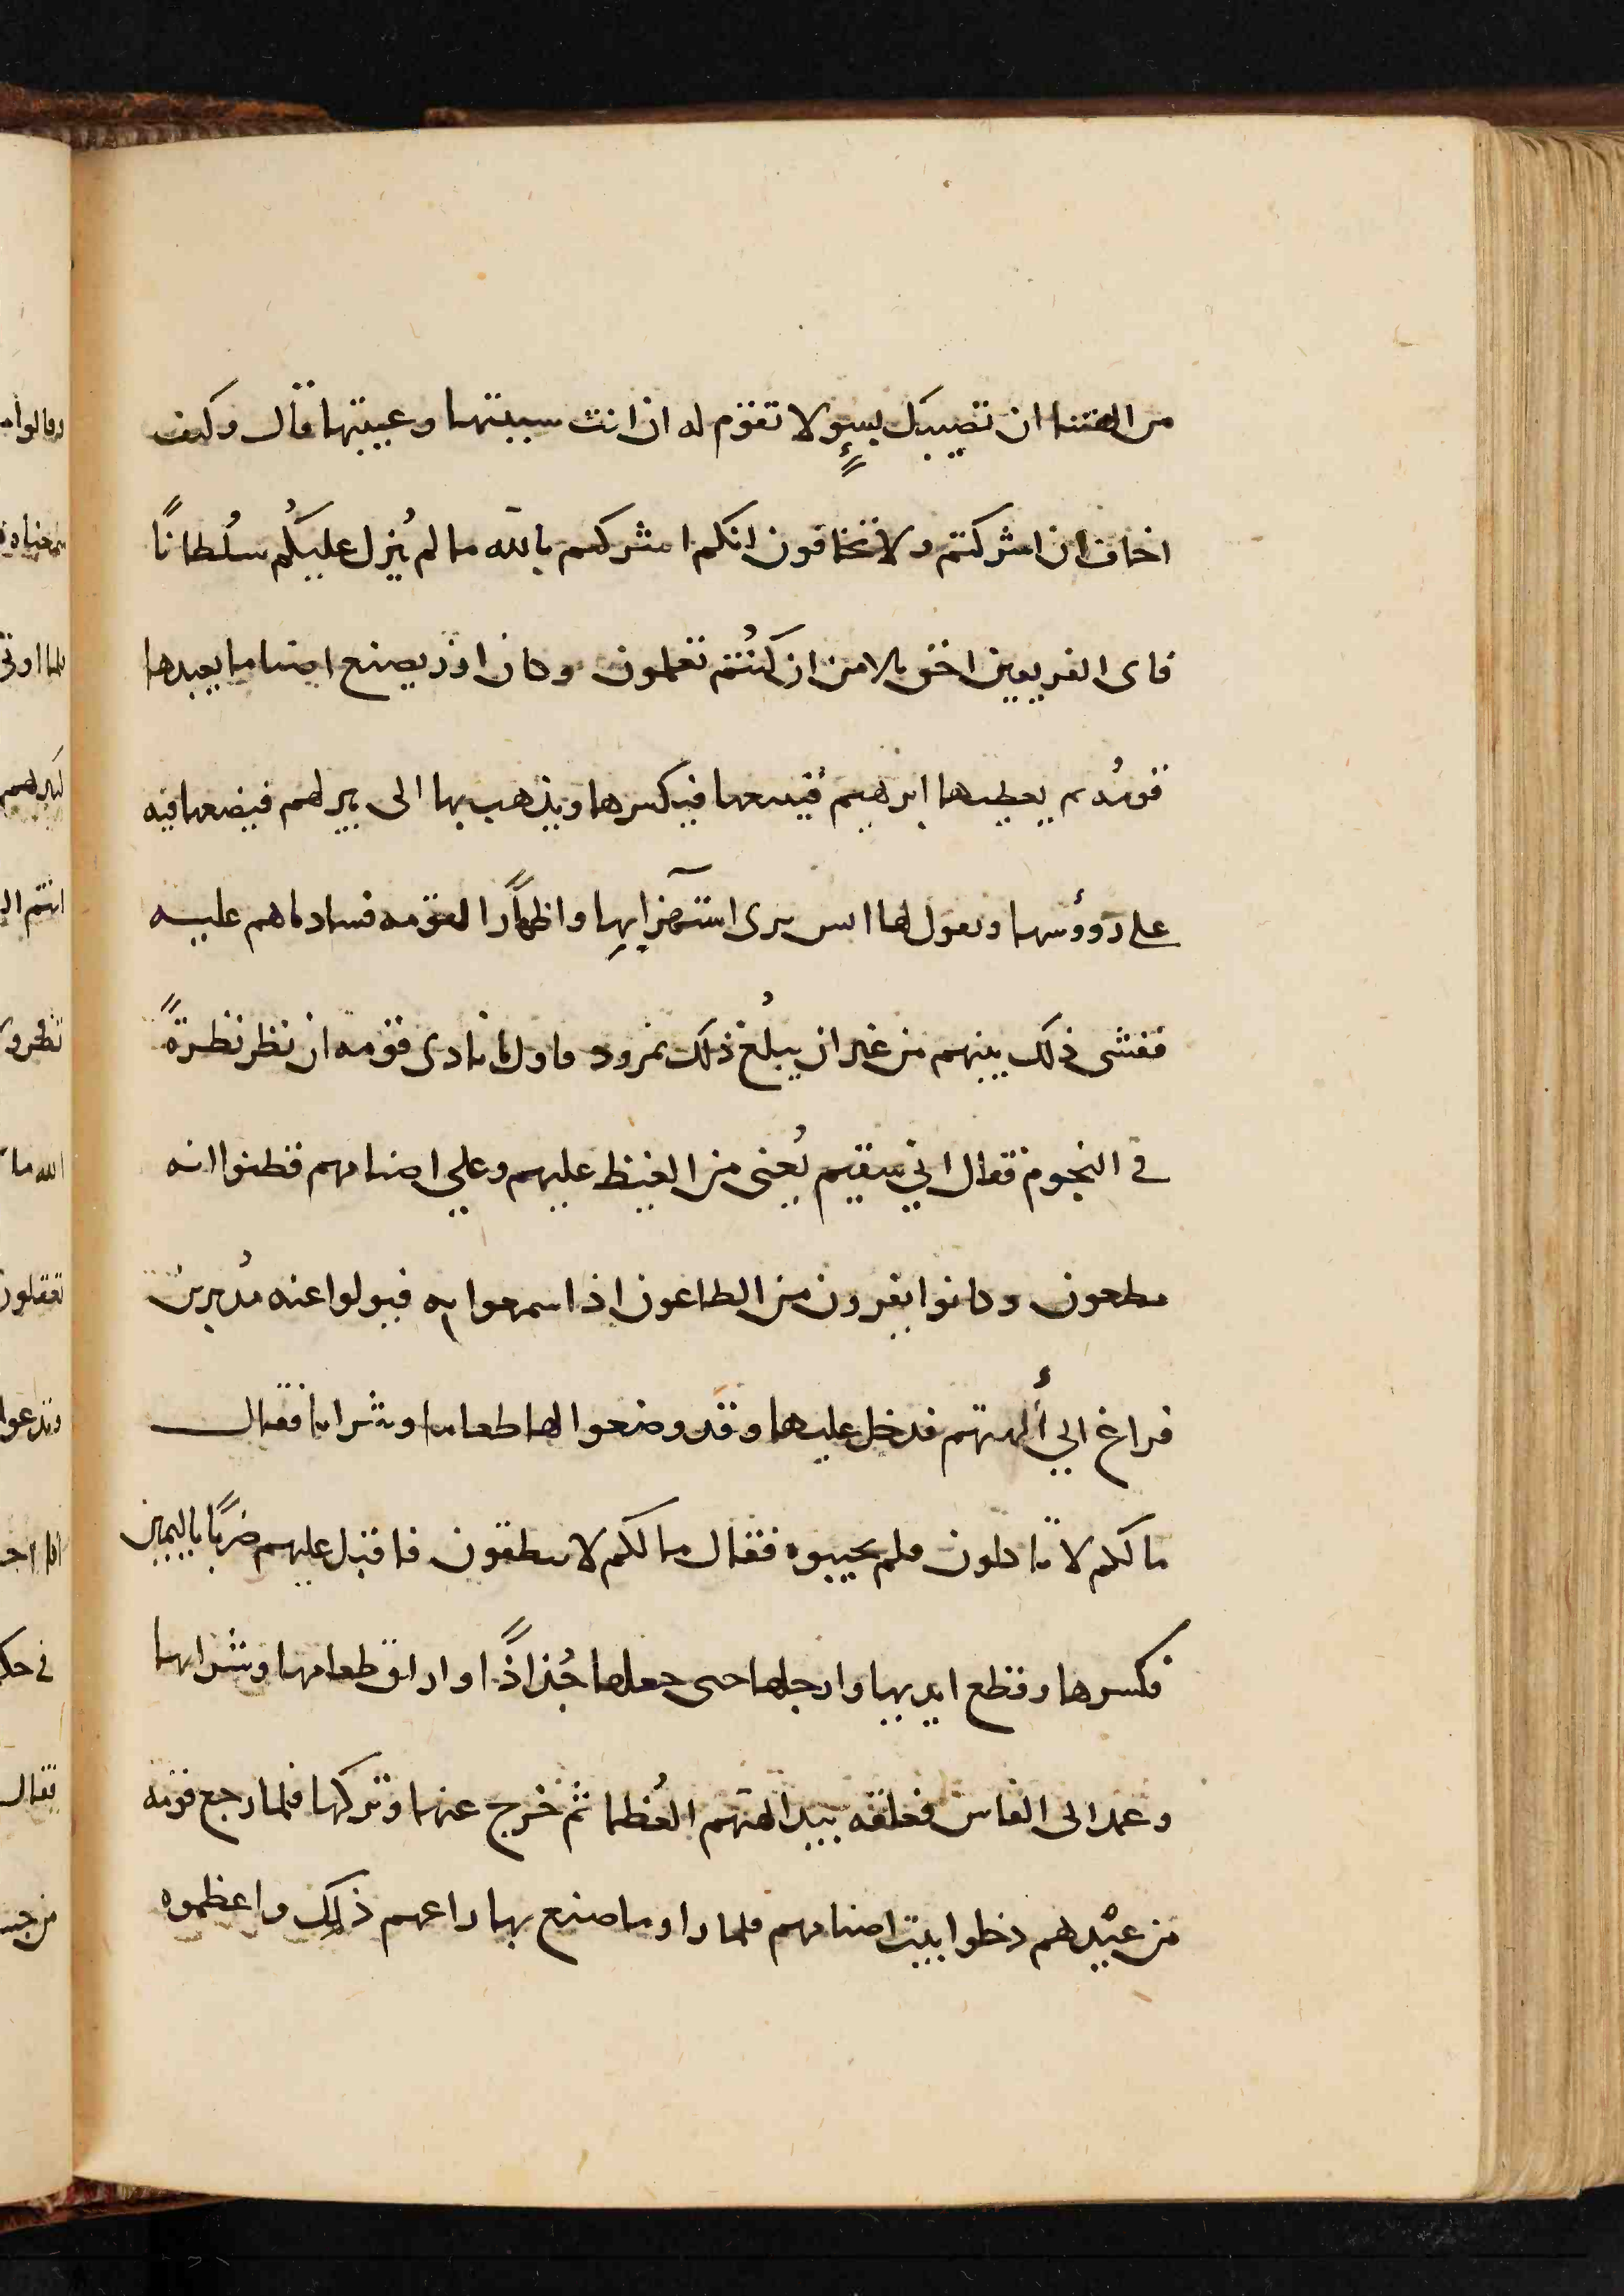 من الهتنا ان تصيبك بسوٍ لا تقوم له ان انت سببتها وعيبتها قال وكيف
اخاف ان اشركتم ولا تخافون انكم اشركتم بالله ما لم يُنزل عليكُم سُلطاناً
فاى الفريقين احق بالامن ان كُنتم تعلمون وكان ازر يصنع اصناما يعبدها
قومُه ثم يعطيها ابرهيم فيبيعها فيكسرها ويذهب بها الى بير لهم فيضعها فيه
على رووُسها ويقول لها اشربى استهزآ بهِا واظهاًرا لقومه فساد ما هم عليه
ففشى ذلك بينهم من غير ان يبلُغ ذلك نمرود فاول ما نادى قومه ان نظر نظرةً
في النجوم فقال اني سقيم يُعنى من الغيظ عليهم وعلي اصنامهم فظنوا انه
مطعون وكانوا يفرون من الطاعون اذا سمعوا به فيولوا عنه مُدبرين
فراغ الي ألهتهم فدخل عليها وقد وضعوا لها طعاما وشرابا فقال
ما لكم لا تاكلون فلم يجيبوه فقال ما لكم لا تنطقون فاقبل عليهم ضربًا باليمين
فكسرها وقطع ايديها وارجلها حتى جعلها جُذاذًا واراق طعامها وشرابها
وعمد الى الفاس فعلقه بيد الهتهم العُظما ثم خرج عنها وتركها فلما رجع قومه
من عيْدهم دخلوا بيت اصنامهم فلما راوا ما صنع بها راعهم ذلك واعظموه